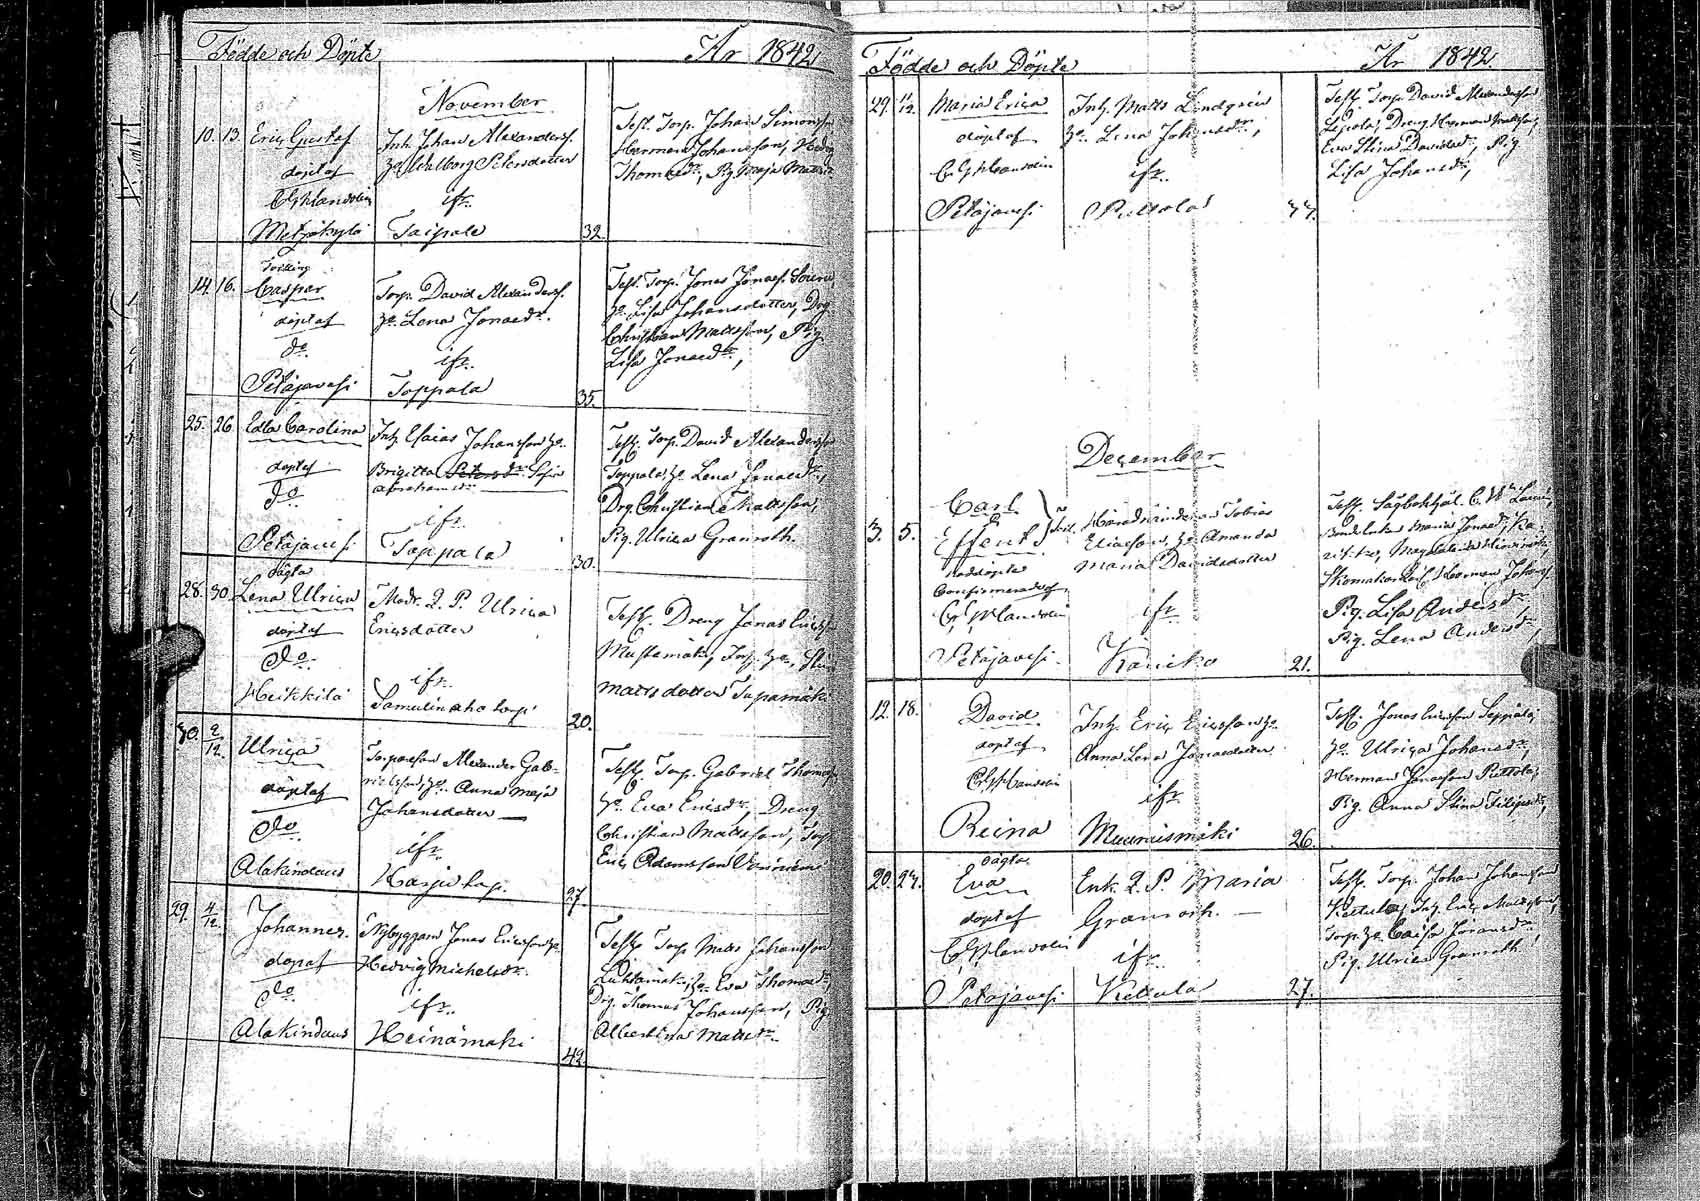 Födde och Döpte År 1842
November
10. 13. Eric Gustaf
döpt af
Metzäkylä
Inh. Johan Alexandersf.
h:o Walborg Petersdotter
ifr.
Taipale
32.
Test. Torp. Johan Simonss
Herman Johansson, Hedvig
Thomasd:r, Pig. Maja Matts
14. 16. Tvilling
Caspar
döpt af
d:o
Petäjävesi
Torp. David Alexandersf.
h:o Lena Jonaed:r
ifr.
Toppala
35.
Test. Torp. Jonas Jonaesf.
h:o Lisa Johansdotter, Drg
Christian Mattsson, Pig.
Lisa Jonaed:r,
25. 26. Edla Carolina
döpt af
d:o
Petäjävesi
Inh. Esaias Johansson h:o
Brigitta Petersd:r Sofia
Abrahamsd:r
ifr.
Toppala
30.
Test. Torp. David Alexandersson
Toppala, h:o Lena Jonaed:r,
Drg. Christian Mattsson,
Pig. Ulrica Granroth.
28. 30. oägta
Lena Ulrica
döpt af
d:o
Heikkilä
Modr. L. P. Ulrica
Ericsdotter
ifr.
Samulinaho torp
20.
Test. Dreng Jonas Erics
Mustamäki, Torp. h:o, Stin
Mattsdotter Tupamäki
30. 2/12. Ulrica
döpt af
d:o
Alakindaus
Torparesson Alexander Gab-
rielsson, h:o Anna Maja
Johansdotter
ifr.
Harju torp.
27.
Test. Torp. Gabriel Thomas
h:o Eva Ericsd:r, Dreng
Christian Mattsson, Torp
Eric Adamsson
29. 4/12. Johannes.
döpt af
d:o
Alakindaus
Nybyggaren Jonas Ericsson h:o
Hedvig Michelsd:r.
ifr.
Heinämäki
42.
Test. Torp. Matts Johansson
Luhtamäki, h:o Eva Thomasd:r,
Drg. Thomas Johansson, Pig
Albertina Mattsd:r.
Födde och Döpte År 1842.
29. 11/12 Maria Erica
döpt af
Petäjävesi
Inh. Matts Lindgrén
h:o Lena Johansd:r,
ifr.
Puttola
Test. Torp. David Alexandersson
Dreng Herman
Eva Stina Davidsd:r, Pig.
Lisa Johansd:r,
December
3. 5. Carl
Effent
nöddöpte
Confirmerad af
Petäjävesi
Häradsnämdeman Tobias
Eliasson, h:o Amanda
Maria Davidsdotter
ifr.
Kaniko
21.
Test. Sågbokhål. C. W:m
Bondeenka Maria Jonaed:r,
Magdalena
Pig. Lisa Andersd:r,
Pig. Lena Andersd:r,
12. 18. David
döpt af
Reina
Inh. Eric Ericsson h:o
Anna Lena Jonaedotter
ifr.
Muuraismäki
26.
Test. Jonas Ericsson Seppälä,
h:o Ulrica Johansd:r,
Herman Jonaeson Puttola,
Pig. Anna Stina Filipsd:r,
20. 27. oägta
Eva
döpt af
Petäjävesi
Enk. L. P. Maria
Granroth.
ifr.
Kettula
27.
Test. Torp. Johan Johansson
Kettula, Inh. Eric
Torp. h:o Caisa Jonaesd:r
Pig. Ulrica Granroth,